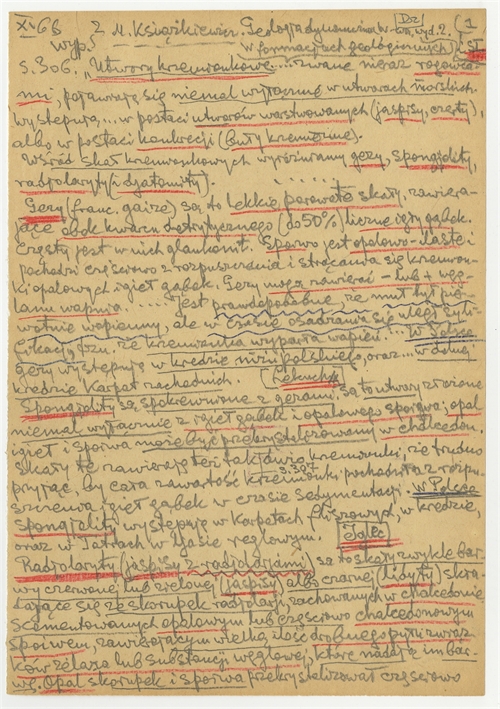 XI.66 2 M. Książkiewicz. Geologia dynamiczna, wyd. 2. (1
wyp. w formacjach geologicznych
s. 306. "Utwory krzemionkowe... zwane nieraz rogowca-
mi, pojawiają się niemal wyłącznie w utworach morskich.
Występują... w postaci utworów warstwowanych (jaspisy, czerty),
albo w postaci konkrecji (buły krzemienne).
Wśród skał krzemionkowych wyróżniamy gezy, spongolity,
radiolaryty (i diatomity). . . . . . .
Gezy (franc. gaize) są to lekkie, porowate skały, zawiera-
jące obok kwarcu detrytycznego (do 50%) liczne igły gąbek.
Częsty jest w nich glaukonit. Spoiwo jest opalowo-ilaste i
pochodzi częściowo z rozpuszczenia i strącania się krzemion-
ki opalowych igieł gąbek. Gezy mogą zawierać - lub + węg-
lanu wapnia. . . . . Jest prawdopodobne, że muł był pier-
wotnie wapienny, ale w czasie osadzania się uległ syli-
fikacji, tzn. że krzemionka wyparła wapień... W Polsce
gezy występują w kredzie niżu polskiego, oraz... w dolnej
kredzie Karpat zachodnich.
Spongolity są spokrewnione z gezami; są to utwory złożone
niemal wyłącznie z igieł gąbek i opalowego spoiwa; opal
igieł i spoiwa może być przekrystalizowany w chalcedon.
Skały te zawierają też tak dużo krzemionki, że trudno
s. 307
przyjąć, by cała zawartość krzemionki pochodziła z rozpu-
szczenia igieł gąbek w czasie sedymentacji. W Polsce
spongiolity występują w Karpatach fliszowych, w kredzie,
oraz w Tatrach w liasie reglowym.
Radiolaryty (jaspisy z radiolariami) są to skały zwykle bar-
wy czerwonej lub zielonej (jaspisy) albo czarnej (lidyty) skła-
dające się ze skorupek radiolarii, zachowanych w chalcedonie
scementowanych opalowym lub częściowo chalcedonowym
spoiwem, zawierającym wielką ilość drobnego pyłu związ-
ków żelaza lub substancji węglowej, które nadają im bar-
wę. Opal skorupek i spoiwa przekrystalizował częściowo